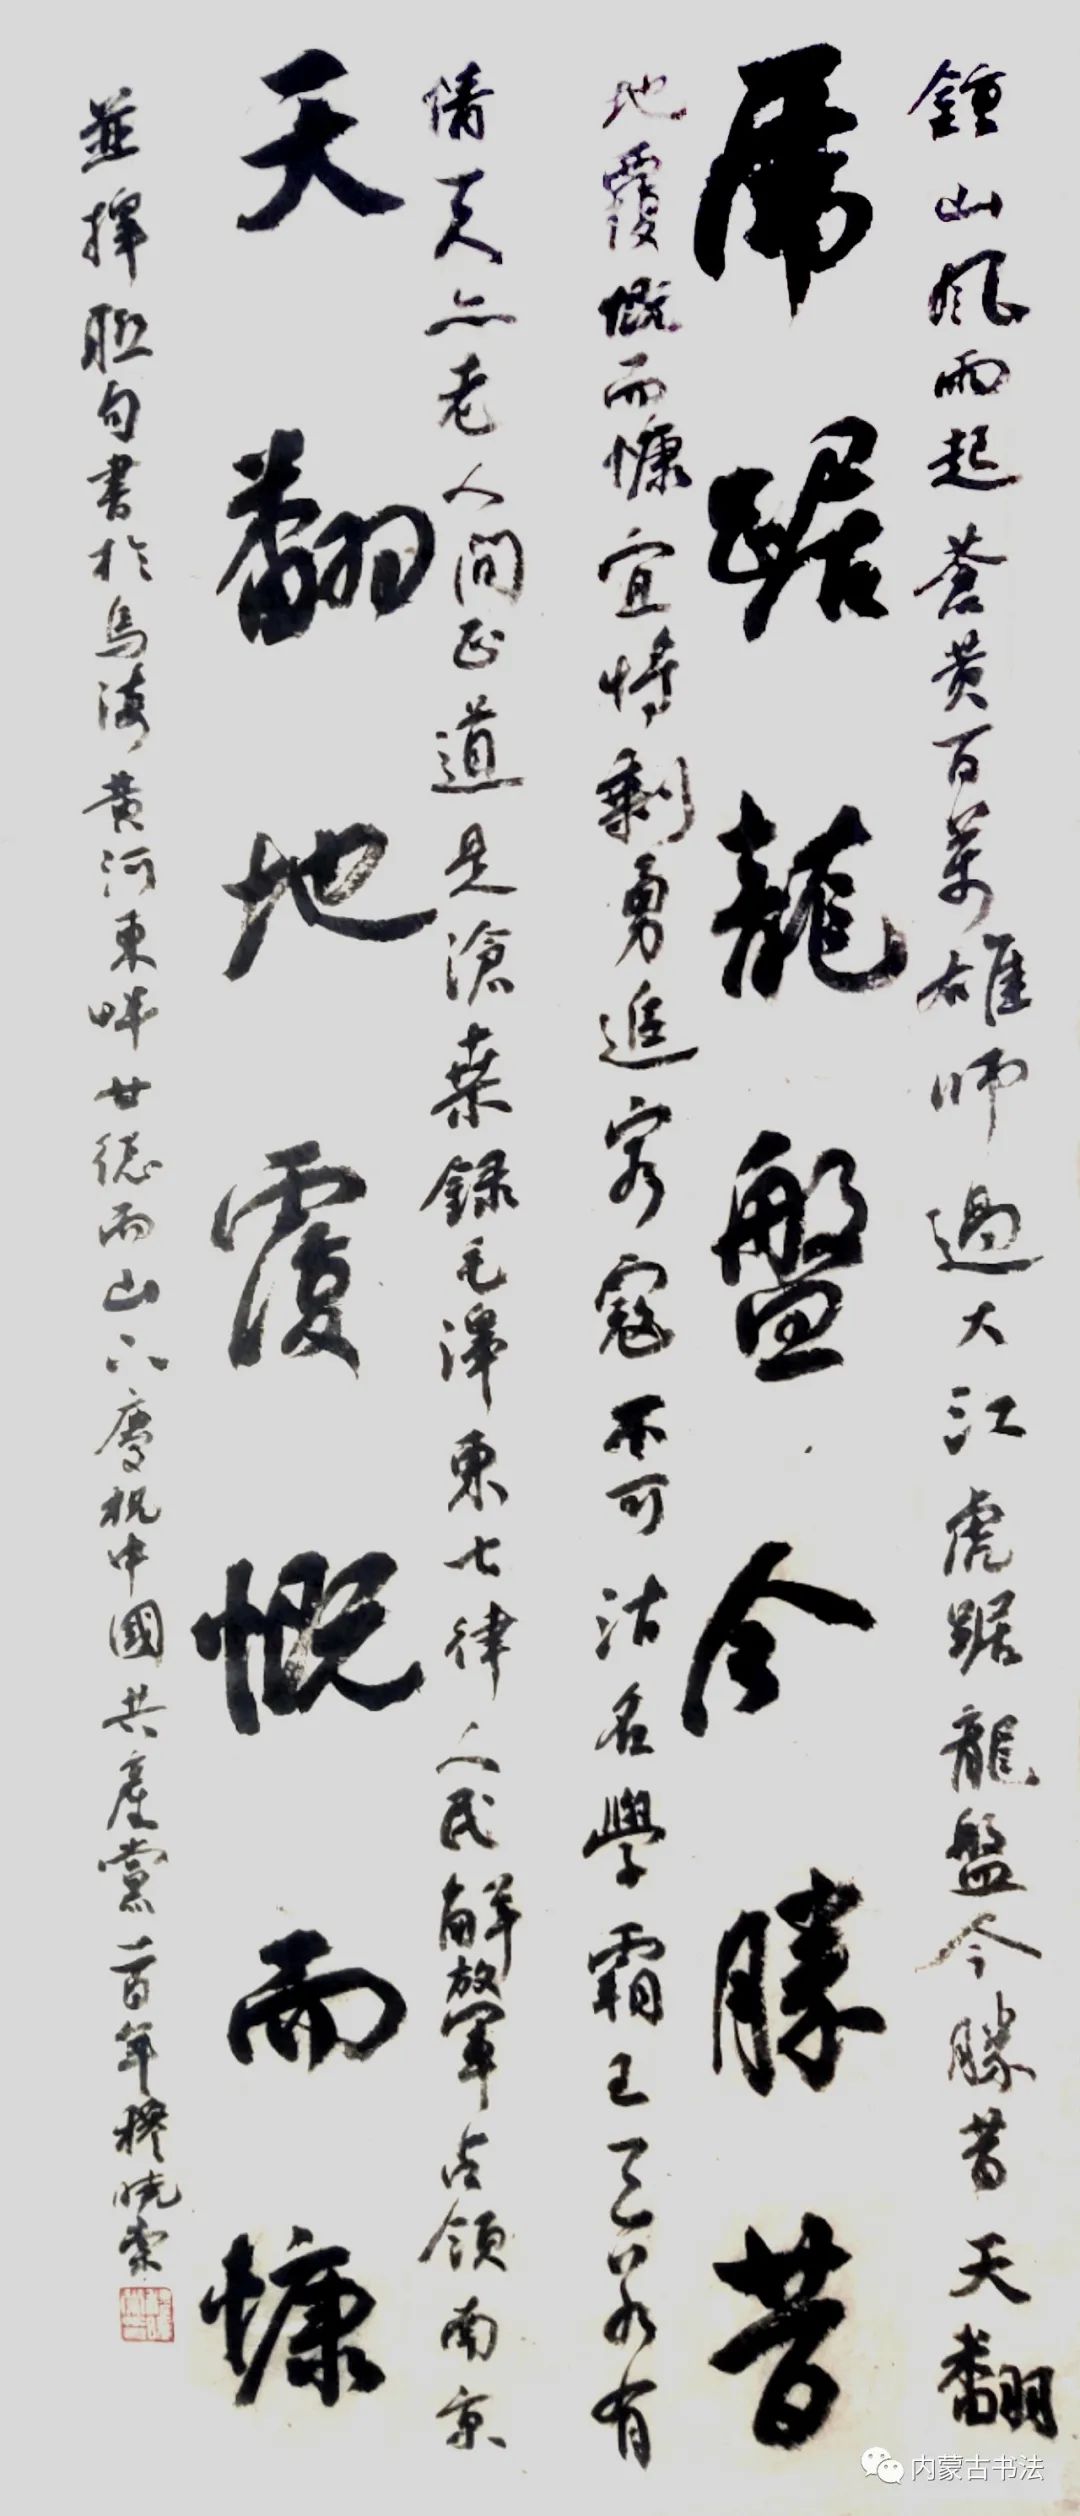 鍾山風雨起蒼黃百萬雄師過大江虎踞龍盤今勝昔天翻
虎踞龍盤今勝昔
地覆慨而慷宜將剩勇追窮寇不可沽名學霸王天若有
情天亦老人間正道是滄桑錄毛澤東七律人民解放軍占領南京
天翻地覆慨而慷
並擇聯句書於烏海黃河東畔甘德而山下慶祝中國共產黨百年穆曉
内蒙古书法